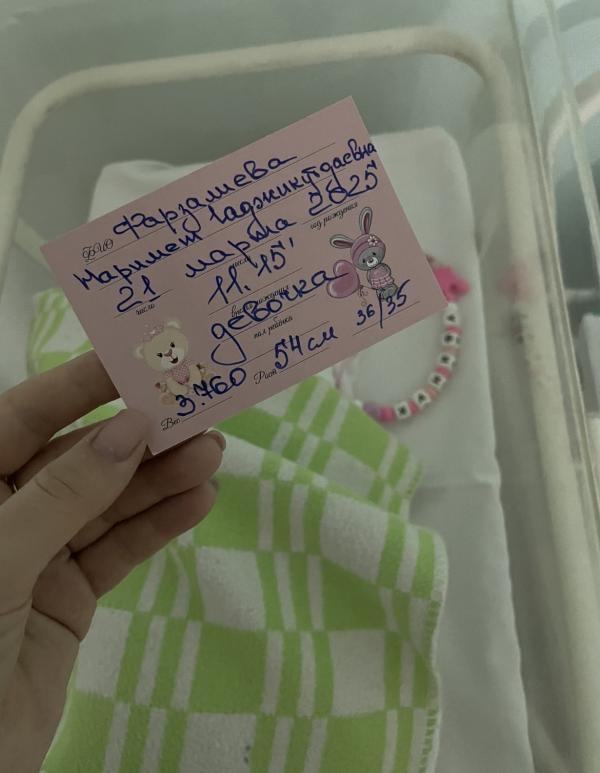 Фарзалиева
ФИО Маримет Гаджикурдаевна
21 марта 2025
число месяц год рождения
11.15'
время рождения
девочка
пол ребёнка
Вес 3.760 Рост 54 см 36/35